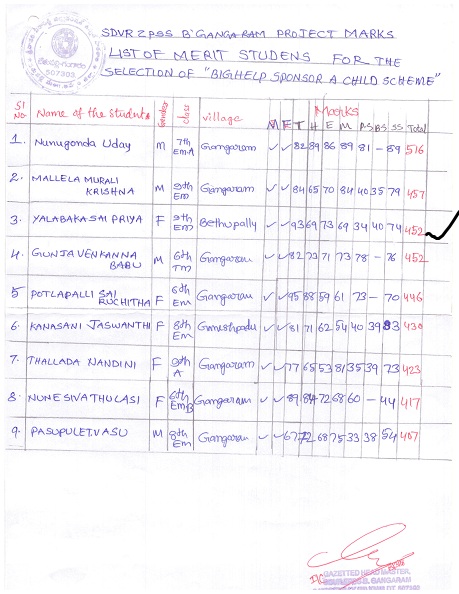 SDVR Z PSS B' GANGARAM PROJECT MARKS
LIST OF MERIT STUDENS FOR THE
SELECTION OF "BIGHELP SPONSOR A CHILD SCHEME"
507303
Marks
Sl No Name of the Students Gender class village M E T H E M P.S B.S SS Total
1. Nunugonda Uday M 7th EM-A Gangaram ✓ ✓ 82 89 86 89 81 – 89 516
2. MALLELA MURALI KRISHNA M 9th EM Gangaram ✓ ✓ 84 65 70 84 40 35 79 457
3. YALABAKA SAI PRIYA F 9th EM Bethupally ✓ ✓ 93 69 73 69 34 40 74 452
4. GUNJA VENKANNA BABU M 6th TM Gangaram ✓ ✓ 82 73 71 73 78 – 76 452
5 POTLAPALLI SAI RUCHITHA F 6th EM Gangaram ✓ ✓ 95 88 59 61 73 – 70 446
6. KANASANI JASWANTHI F 8th EM ✓ ✓ 81 71 62 54 40 39 83 430
7. THALLADA NANDINI F 9th A Gangaram ✓ ✓ 77 65 53 81 35 39 73 423
8. NUNE SIVA THULASI F 6th EM B Gangaram ✓ ✓ 89 84 72 68 60 – 44 417
9. PASUPULETI.VASU M 8th EM Gangaram ✓ ✓ 67 72 68 75 33 38 54 407
GAZETTED HEADMASTER,
B. GANGARAM